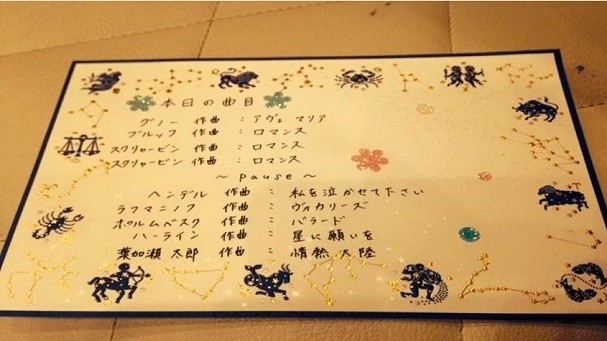 本日の曲目
グノー 作曲 : アヴェ マリア
ブルッフ 作曲 : ロマンス
スクリャービン 作曲 : ロマンス
スクリャービン 作曲 : ロマンス
～ pause ～
ヘンデル 作曲 : 私を泣かせて下さい
ラフマニノフ 作曲 : ヴォカリーズ
ポルムベスク 作曲 : バラード
ハーライン 作曲 : 星に願いを
葉加瀬 太郎 作曲 : 情熱 大陸